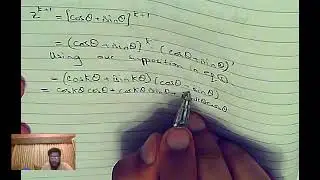 z^{k+1} = [cosθ + i sinθ]^{k+1}
= (cosθ + i sinθ)^k · (cosθ + i sinθ)
Using our supposition in eq
= (cos kθ + i sin kθ)(cosθ + i sinθ)
= cos kθ cosθ + cos kθ i sinθ +